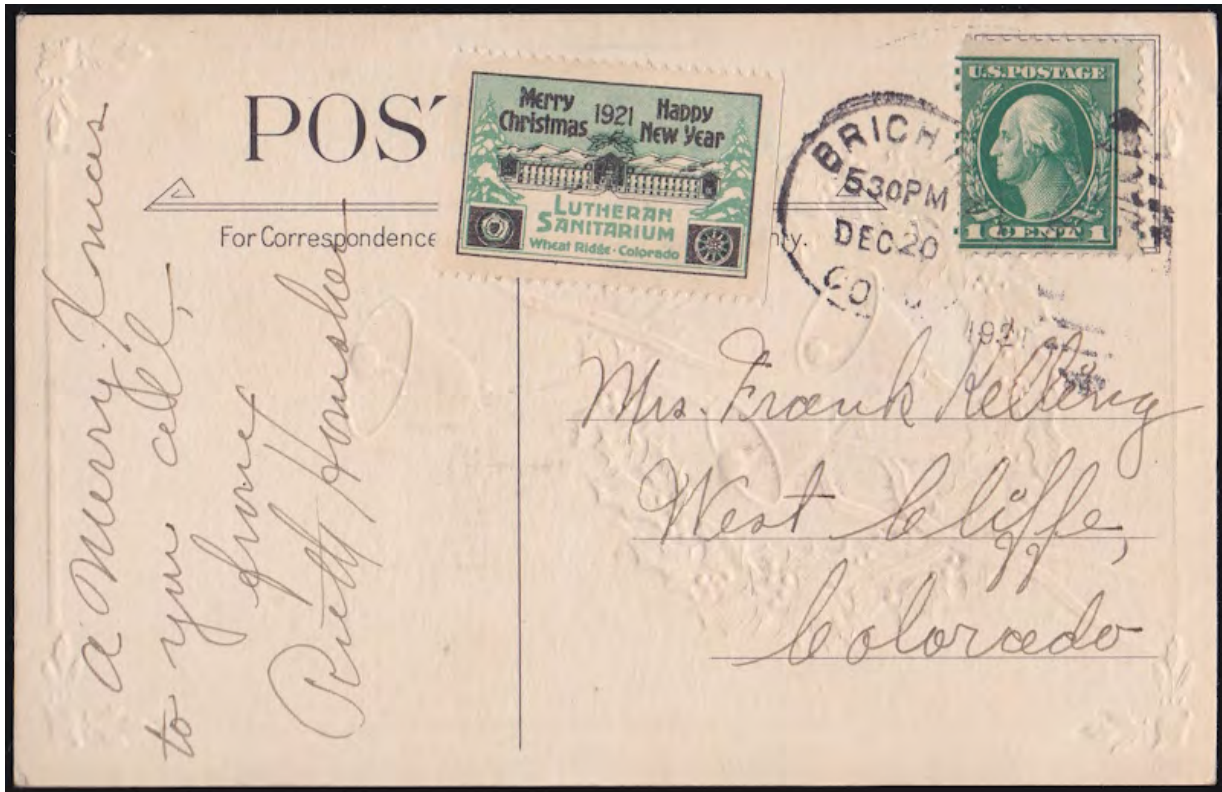 POST
For Correspondence
nly.
Merry Christmas 1921 Happy New Year
LUTHERAN
SANITARIUM
Wheat Ridge - Colorado
BRIGH
530PM
DEC 20
CO
1921
U.S. POSTAGE
1 CENT 1
a Merry Xmas
to you all,
from
Mrs. Frank
West Cliffe,
Colorado